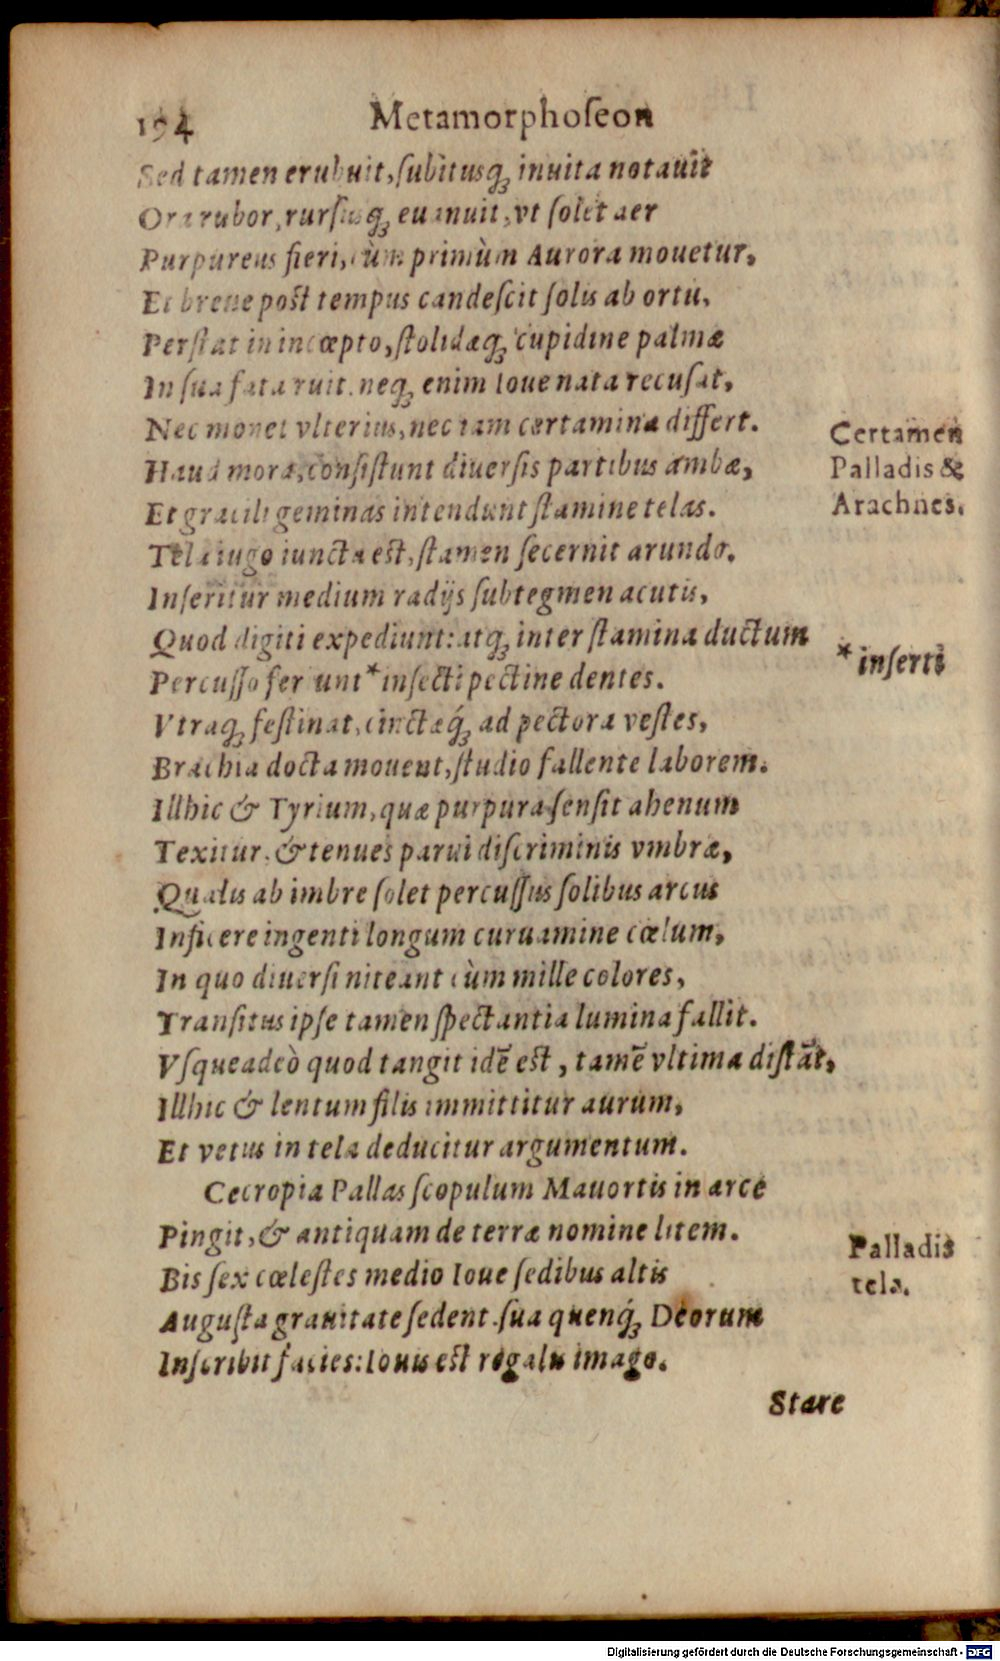 194 Metamorphoſeon
Sed tamen erubuit, ſubitusq́ꝫ inuita notauit
Ora rubor, rurſusqꝫ euanuit, vt ſolet aer
Purpureus fieri, cùm primùm Aurora mouetur,
Et breue poſt tempus candeſcit ſolis ab ortu,
Perſtat in incœpto, ſtolidæqꝫ cupidine palmæ
In ſua fata ruit. neqꝫ enim Ioue nata recuſat,
Nec monet vlterius, nec iam certamina differt.
Haud mora, conſiſtunt diuerſis partibus ambæ,
Certamen
Palladis &
Arachnes.
Et gracili geminas intendunt ſtamine telas.
Tela iugo iuncta eſt, ſtamen ſecernit arundo.
Inſeritur medium radijs ſubtegmen acutis,
Quod digiti expediunt: atqꝫ inter ſtamina ductum
Percuſſo feriunt *inſecti pectine dentes.
*inſerti
Vtraqꝫ feſtinat, cinctæq́ꝫ ad pectora veſtes,
Brachia docta mouent, ſtudio fallente laborem.
Illhic & Tyrium, quæ purpura ſenſit ahenum
Texitur, & tenues parui diſcriminis vmbræ,
Qualis ab imbre ſolet percuſſus ſolibus arcus
Inficere ingenti longum curuamine cœlum,
In quo diuerſi niteant cùm mille colores,
Tranſitus ipſe tamen ſpectantia lumina fallit.
Vſqueadeò quod tangit idē eſt, tamē vltima diſtāt,
Illhic & lentum filis immittitur aurum,
Et vetus in tela deducitur argumentum.
Cecropia Pallas ſcopulum Mauortis in arce
Pingit, & antiquam de terræ nomine litem.
Palladis
tela.
Bis ſex cœleſtes medio Ioue ſedibus altis
Auguſta grauitate ſedent. ſua quenq́ꝫ Deorum
Inſcribit facies: Iouis eſt regalis imago.
Stare
Digitalisierung gefördert durch die Deutsche Forschungsgemeinschaft - DFG